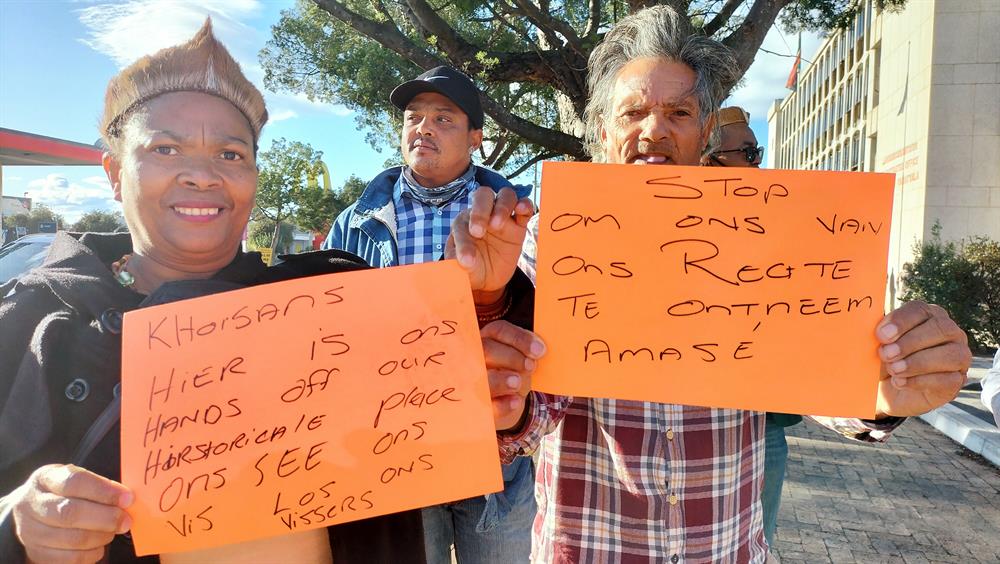 KHOISANS
HIER IS ONS
HANDS OFF OUR
HIRSTORICALE PLACE
ONS SEE ONS
VIS LOS ONS
VISSERS
STOP
OM ONS VAN
ONS REGTE
TE ONTNEEM
AMASÉ